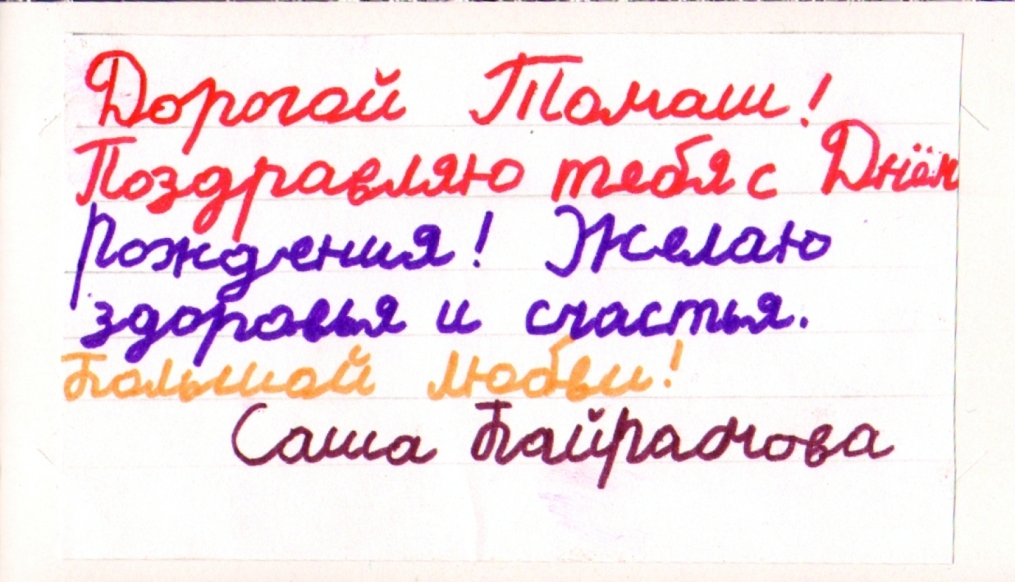 Дорогой Томаш!
Поздравляю тебя с Днём
рождения! Желаю
здоровья и счастья.
Большой любви!
Саша Байрамова